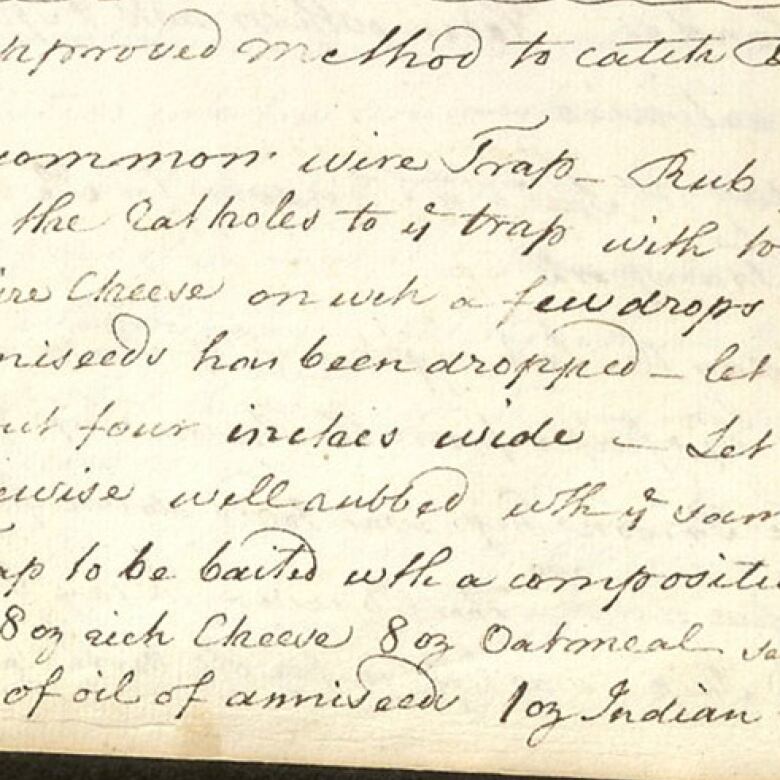 approved method to catch
common wire Trap - Rub
the Ratholes to ye trap with to
ire Cheese on wch a few drops
niseeds has been dropped - let
ut four inches wide - Let
ewise well rubbed wth ye sam
ap to be baited wth a compositi
8 oz rich Cheese 8 oz Oatmeal
of oil of anniseed 1 oz Indian